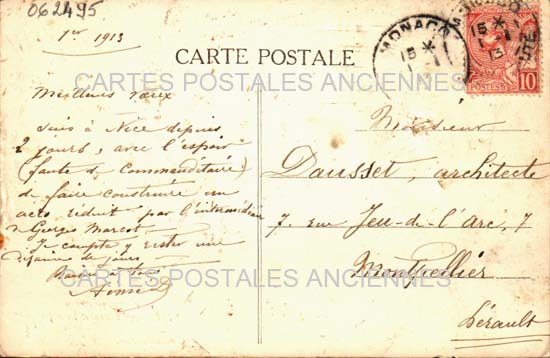 062495
1er 1913
CARTE POSTALE
MONACO
15 *
1 - 1
13
POSTES
10
CARTES POSTALES ANCIENNES
Meilleurs vœux
suis à Nice depuis
2 jours, avec l'espoir
(faute de Commanditaire)
de faire construire un
acte réduit par l'intermédiaire
Georges Marcot
Je compte y rester une
dizaine de jours
Monsieur
Dausset, architecte
7, rue Jeu-de-l'arc, 7
Montpellier
Hérault
CARTES POSTALES ANCIENNES